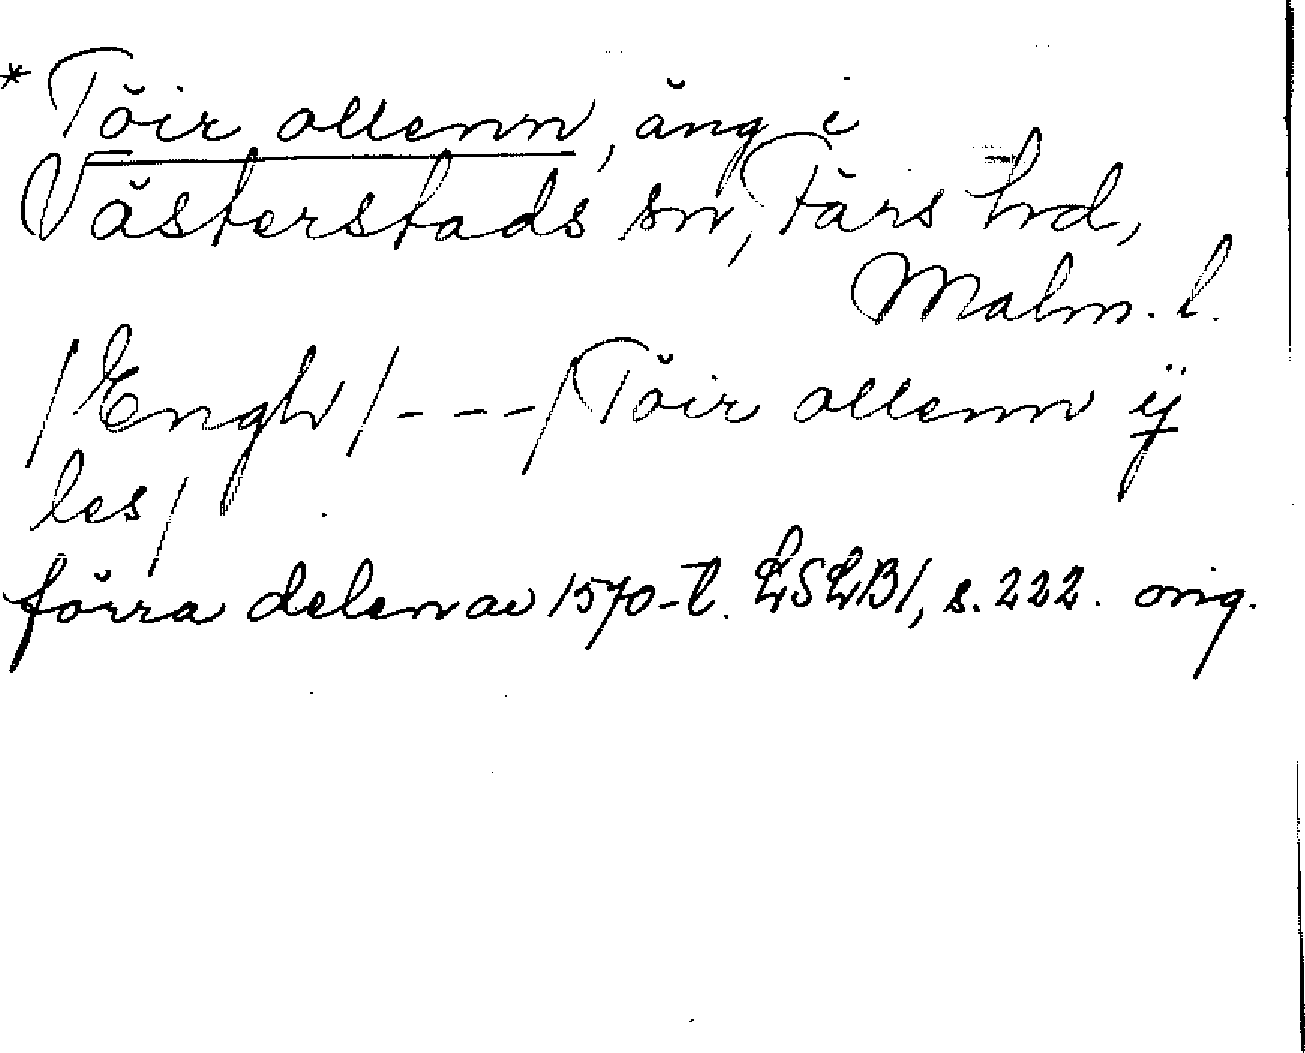 * Töir ollenn, äng i
Västerstads sn, Färs hd,
Malm. l.
/Engh/---/Töir ollenn ÿ
les/
förra delen av 1570-t. LSLB1, s. 222. orig.